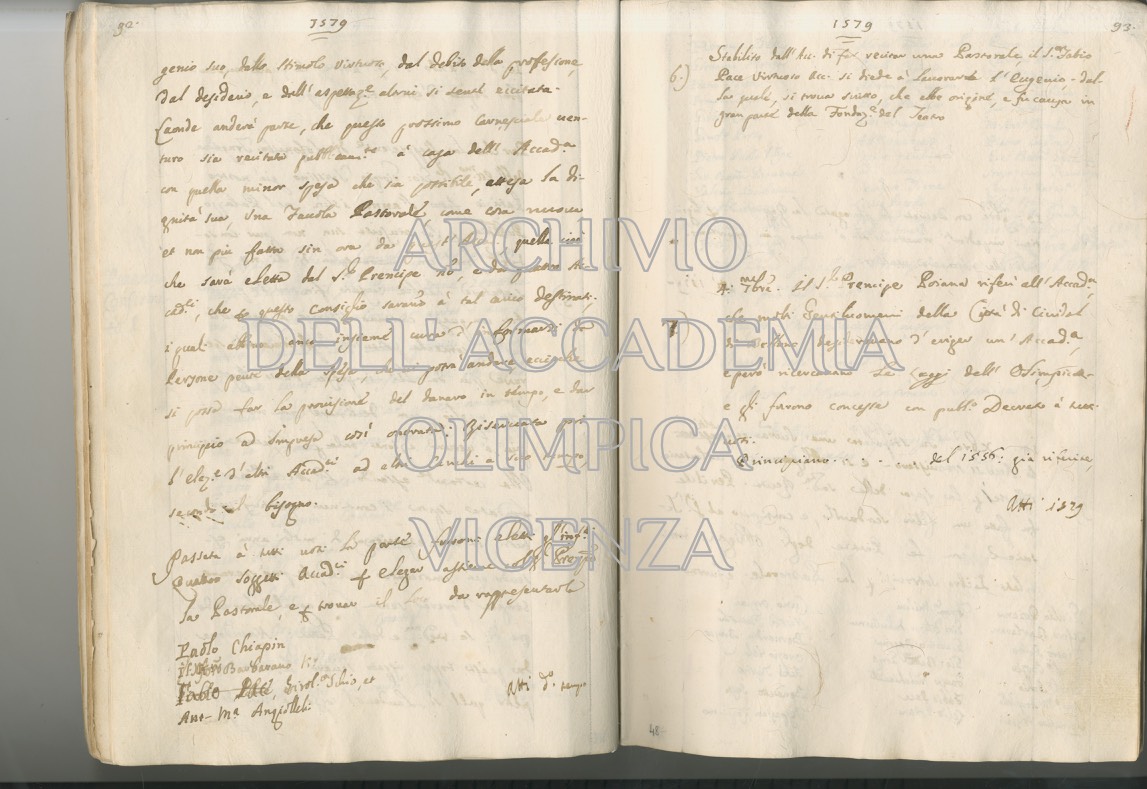 92.
1579
genio suo, dallo stimolo virtuoso, dal debito della professione,
dal desiderio, e dall'aspettaz.e altrui si sente eccitata.
Laonde anderà parte, che questo prossimo Carnevale ven-
turo sia recitata pubblicam.te à casa dell'Accad.a
con quella minor spesa che sia possibile, attesa la di-
gnità sua, Una Favola Pastorale come cosa nuova
et non più fatta sin ora da quella cioè
che sarà eletta dal S.r Prencipe nō, e da quattro Ac-
cad.ci, che questo Consiglio saranno à tal carico destinati,
i quali abbiano anco insieme cura d'informarsi da
Persone della spesa, potrà andare acciochè
si possa far la provisione del danaro in tempo, e dar
principio ad impresa così onorata. Riservata poi
l'elez.e d'altri Accad.ci ad altri carichi a suo tempo,
secondo il bisogno.
Passata à tutti voti la parte furono eletti gl'inf.ti
Quattro Soggetti Accad.ci eleger assieme col S.r
la Pastorale, e trovar il da rappresentarla
Paolo Chiapin
Barbarano
Fabio Pace, Girol.o Schio, et
Ant. M.a Angiolleli
Atti d.o tempo
1579
93.
6.)
Stabilito dall'Acc. di far recitar una Pastorale il S.r Fabio
Pace Virtuoso Acc. si diede a lavorarla l'Eugenio, dal-
la quale, si trova scritto, che ebbe origine, e fu causa in
gran parte della Fondaz.e del Teatro
7.
4. 9mbre. il S.r Prencipe Poiana riferì all'Accad.a,
che molti Gentiluomeni della Città di Cividal
di desideravano d'eriger un'Accad.a,
e però ricercavano le Leggi dell'Olimpica
e gli furono concesse con pubb.o Decreto à tutti
voti.
Principiano. . . . . del 1556. già riferite,
Atti 1579
48
ARCHIVIO
DELL'ACCADEMIA
OLIMPICA
VICENZA